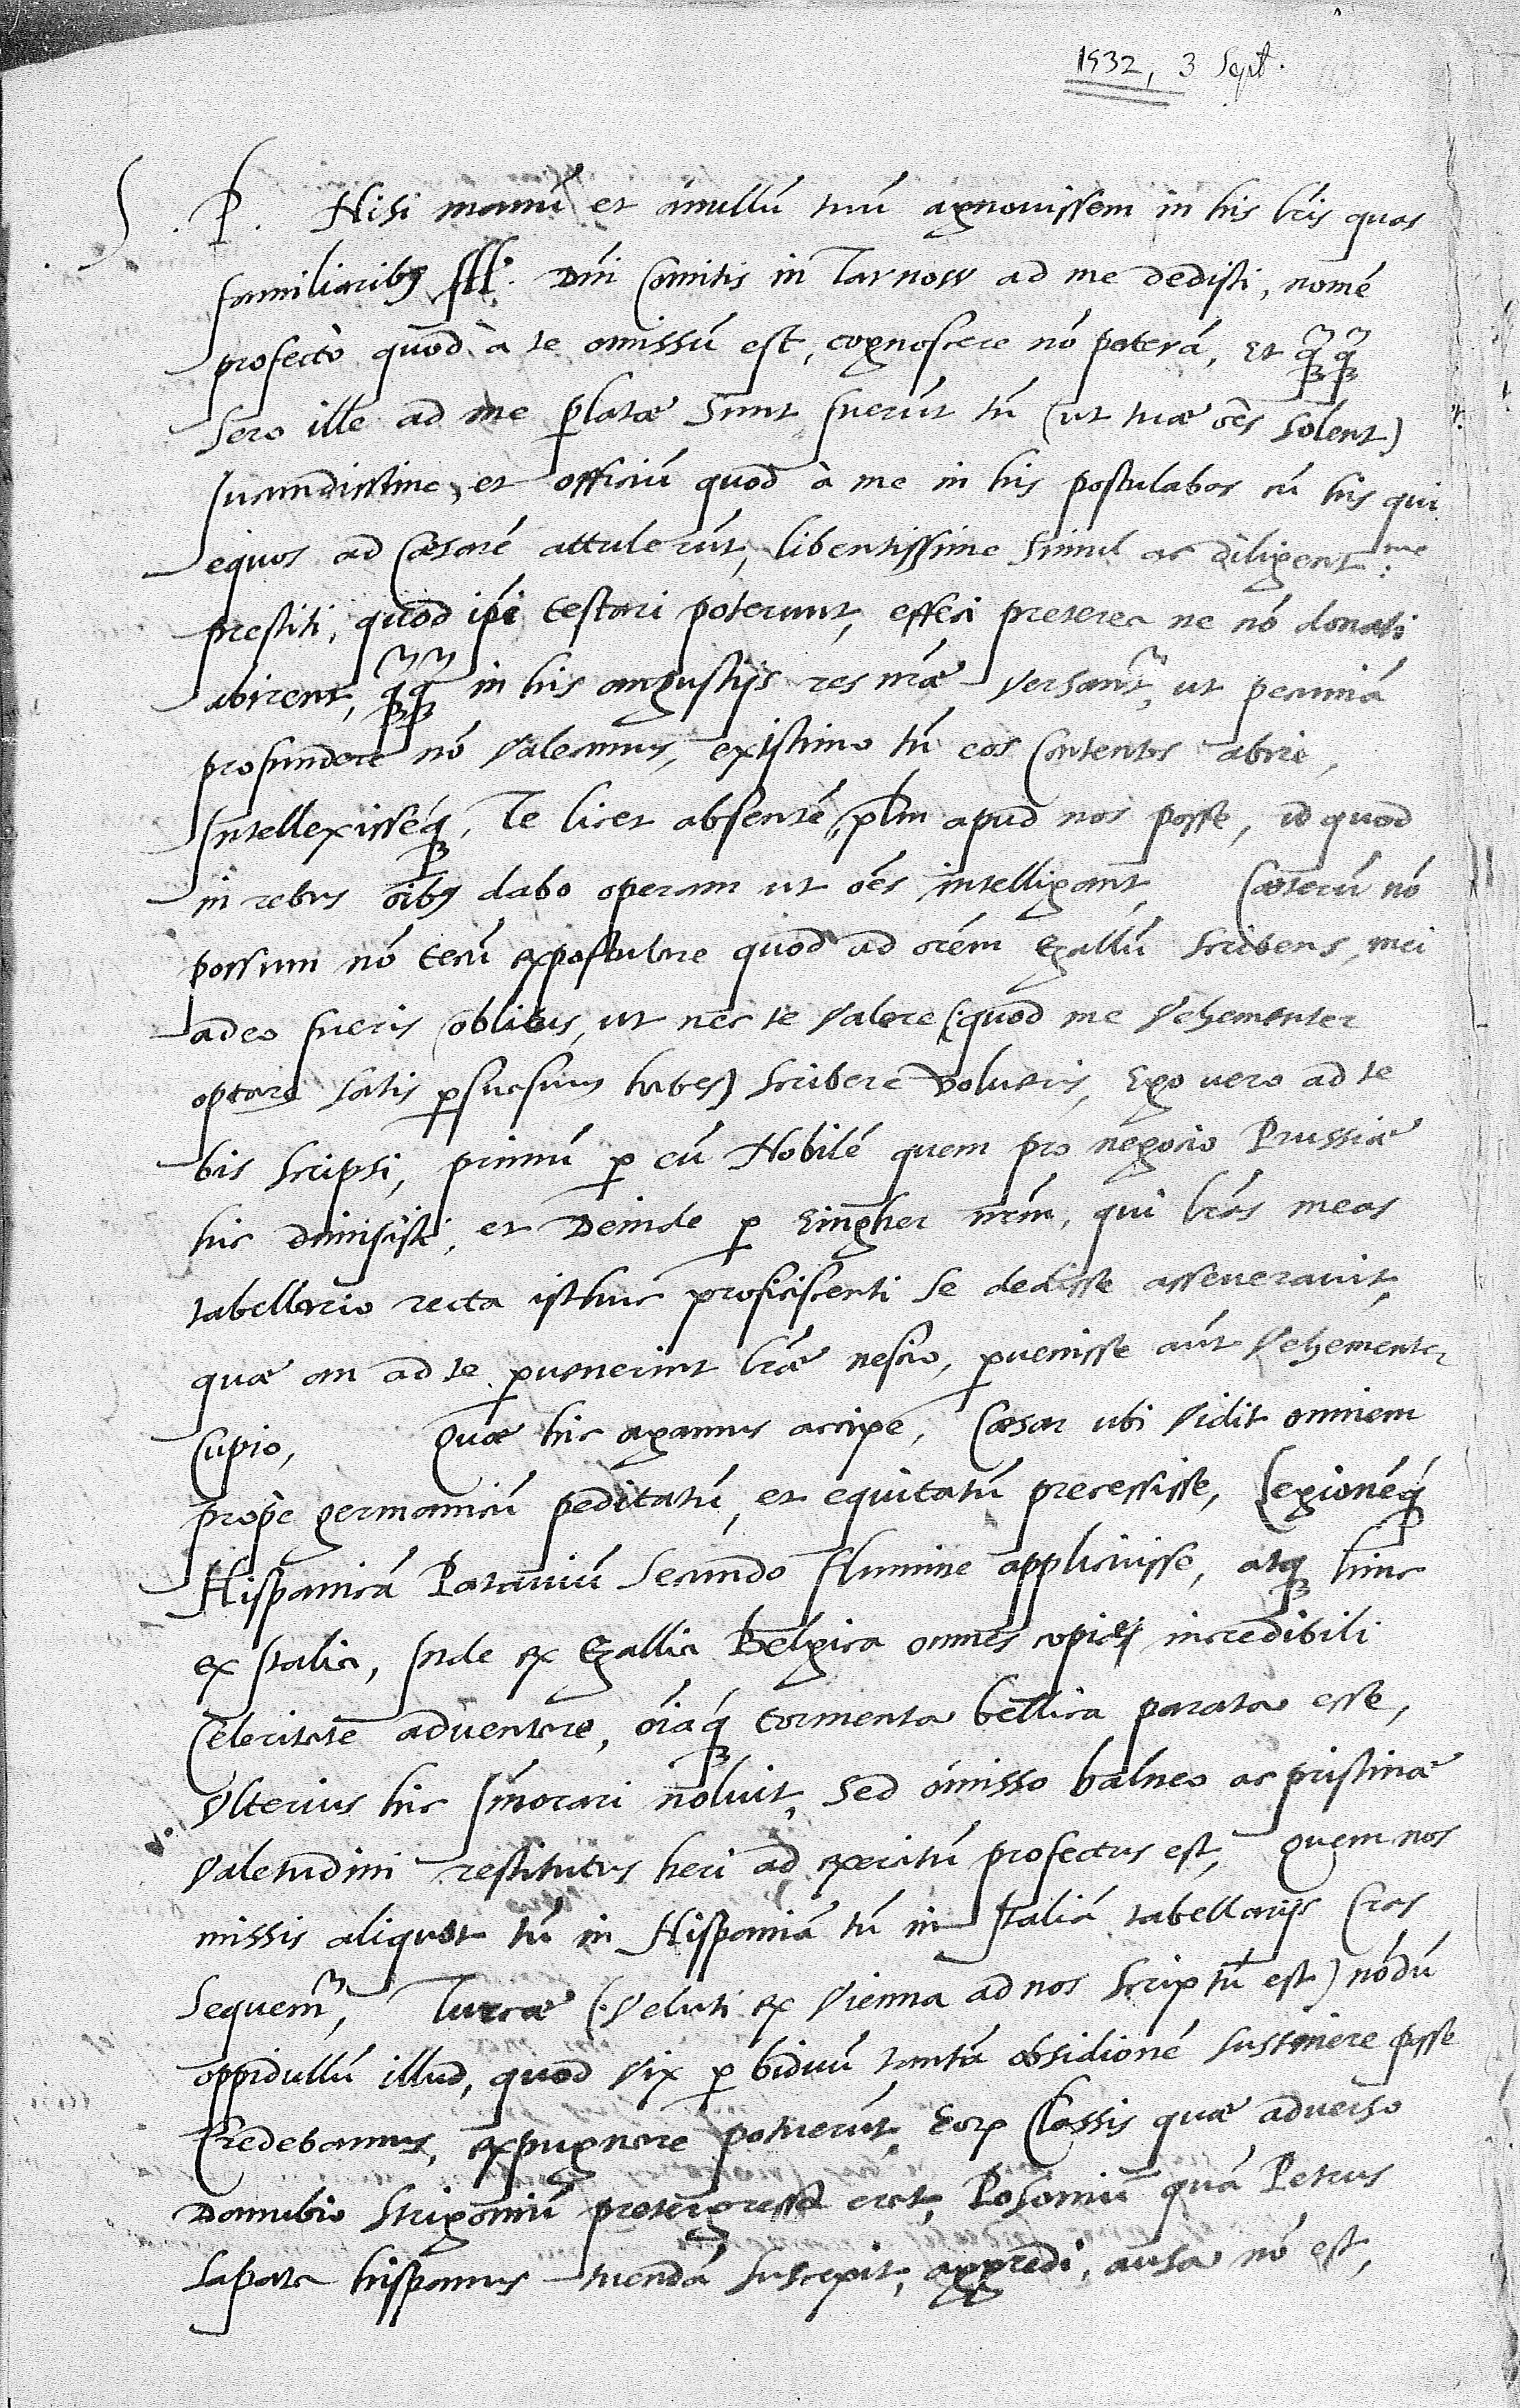 1532, 3 Sept.
S. P. Nisi manũ et ànullũ tuũ agnouissem in his lr̃is quas
familiaribus Ill. Dñi Comitis in Tarnow ad me dedisti, nomẽ
profectò quod à te omissũ est, cognoscere nõ poterã, Et q̃q̃
sero ille ad me ꝑlatæ sunt fuerũt tñ (ut tuæ oẽs solent)
Iucundissime, et officiũ quod à me in his postulabas cũ his qui
equos ad Cæsarẽ attulerũt, libentissime simul ac diligent:me
prestiti, quod ip̃i testari poterunt, effeci preterea ne nõ donati
abirent, q̃q̃ in his angustijs res nr̃æ Versant̃, ut pecuniã
profundere nõ Valeamus, existimo tñ eos Contentos abire,
Intellexisseq́, Te licet absentẽ, pl̃m apud nos posse, id quod
in rebus oĩbus dabo operam ut oẽs intelligant, Cæterũ nõ
possum nõ tecũ expostulare quod ad orẽm Gallũ scribens, mei
adeo fueris oblitus, ut nec te Valere (:quod me Vehementer
optare satis ꝑsuasum habes) scribere Volueris, Ego uero ad te
bis scripsi, primũ ꝑ eũ Nobilẽ quem pro negocio Prussiæ
hic dimisisti, et Deinde ꝑ Eingher nr̃m, qui lr̃as meas
tabellario recta isthuc proficiscenti se dedisse asseuerauit,
quæ an ad te ꝑuenerint lr̃æ nescio, ꝑuenisse aũt Vehementer
Cupio, Quæ hic agamus accipe, Cæsar ubi Vidit omnem
propè germanicũ peditatũ, et equitatũ precessisse, Legionẽq́
Hispanicã Patauiũ secundo flumine applicuisse, atq́ hinc
ex Italia, Inde ex Gallia Belgica omnes copias incredibili
Celeritate aduentare, oĩaq́ tormenta bellica parata esse,
Vlterius hic Im̃orari noluit, sed omisso balneo ac pristinæ
Valetudini restitutus heri ad exercitũ profectus est, Quem nos
missis aliquot tũ in Hispaniã tũ in Italiã tabellarijs Cras
sequem̃, Turcæ (:Veluti ex Vienna ad nos scriptũ est) nõdũ
oppidullũ illud, quod Vix ꝑ biduũ tantã obsidionẽ sustinere posse
Credebamus, expugnare potuerũt, Eoꝝ Classis quæ aduerso
Danubio Strigoniũ protergressa erat, Posoniũ quã Petrus
sapata hispanus tuendã suscepit, aggredi, ausa nõ est,